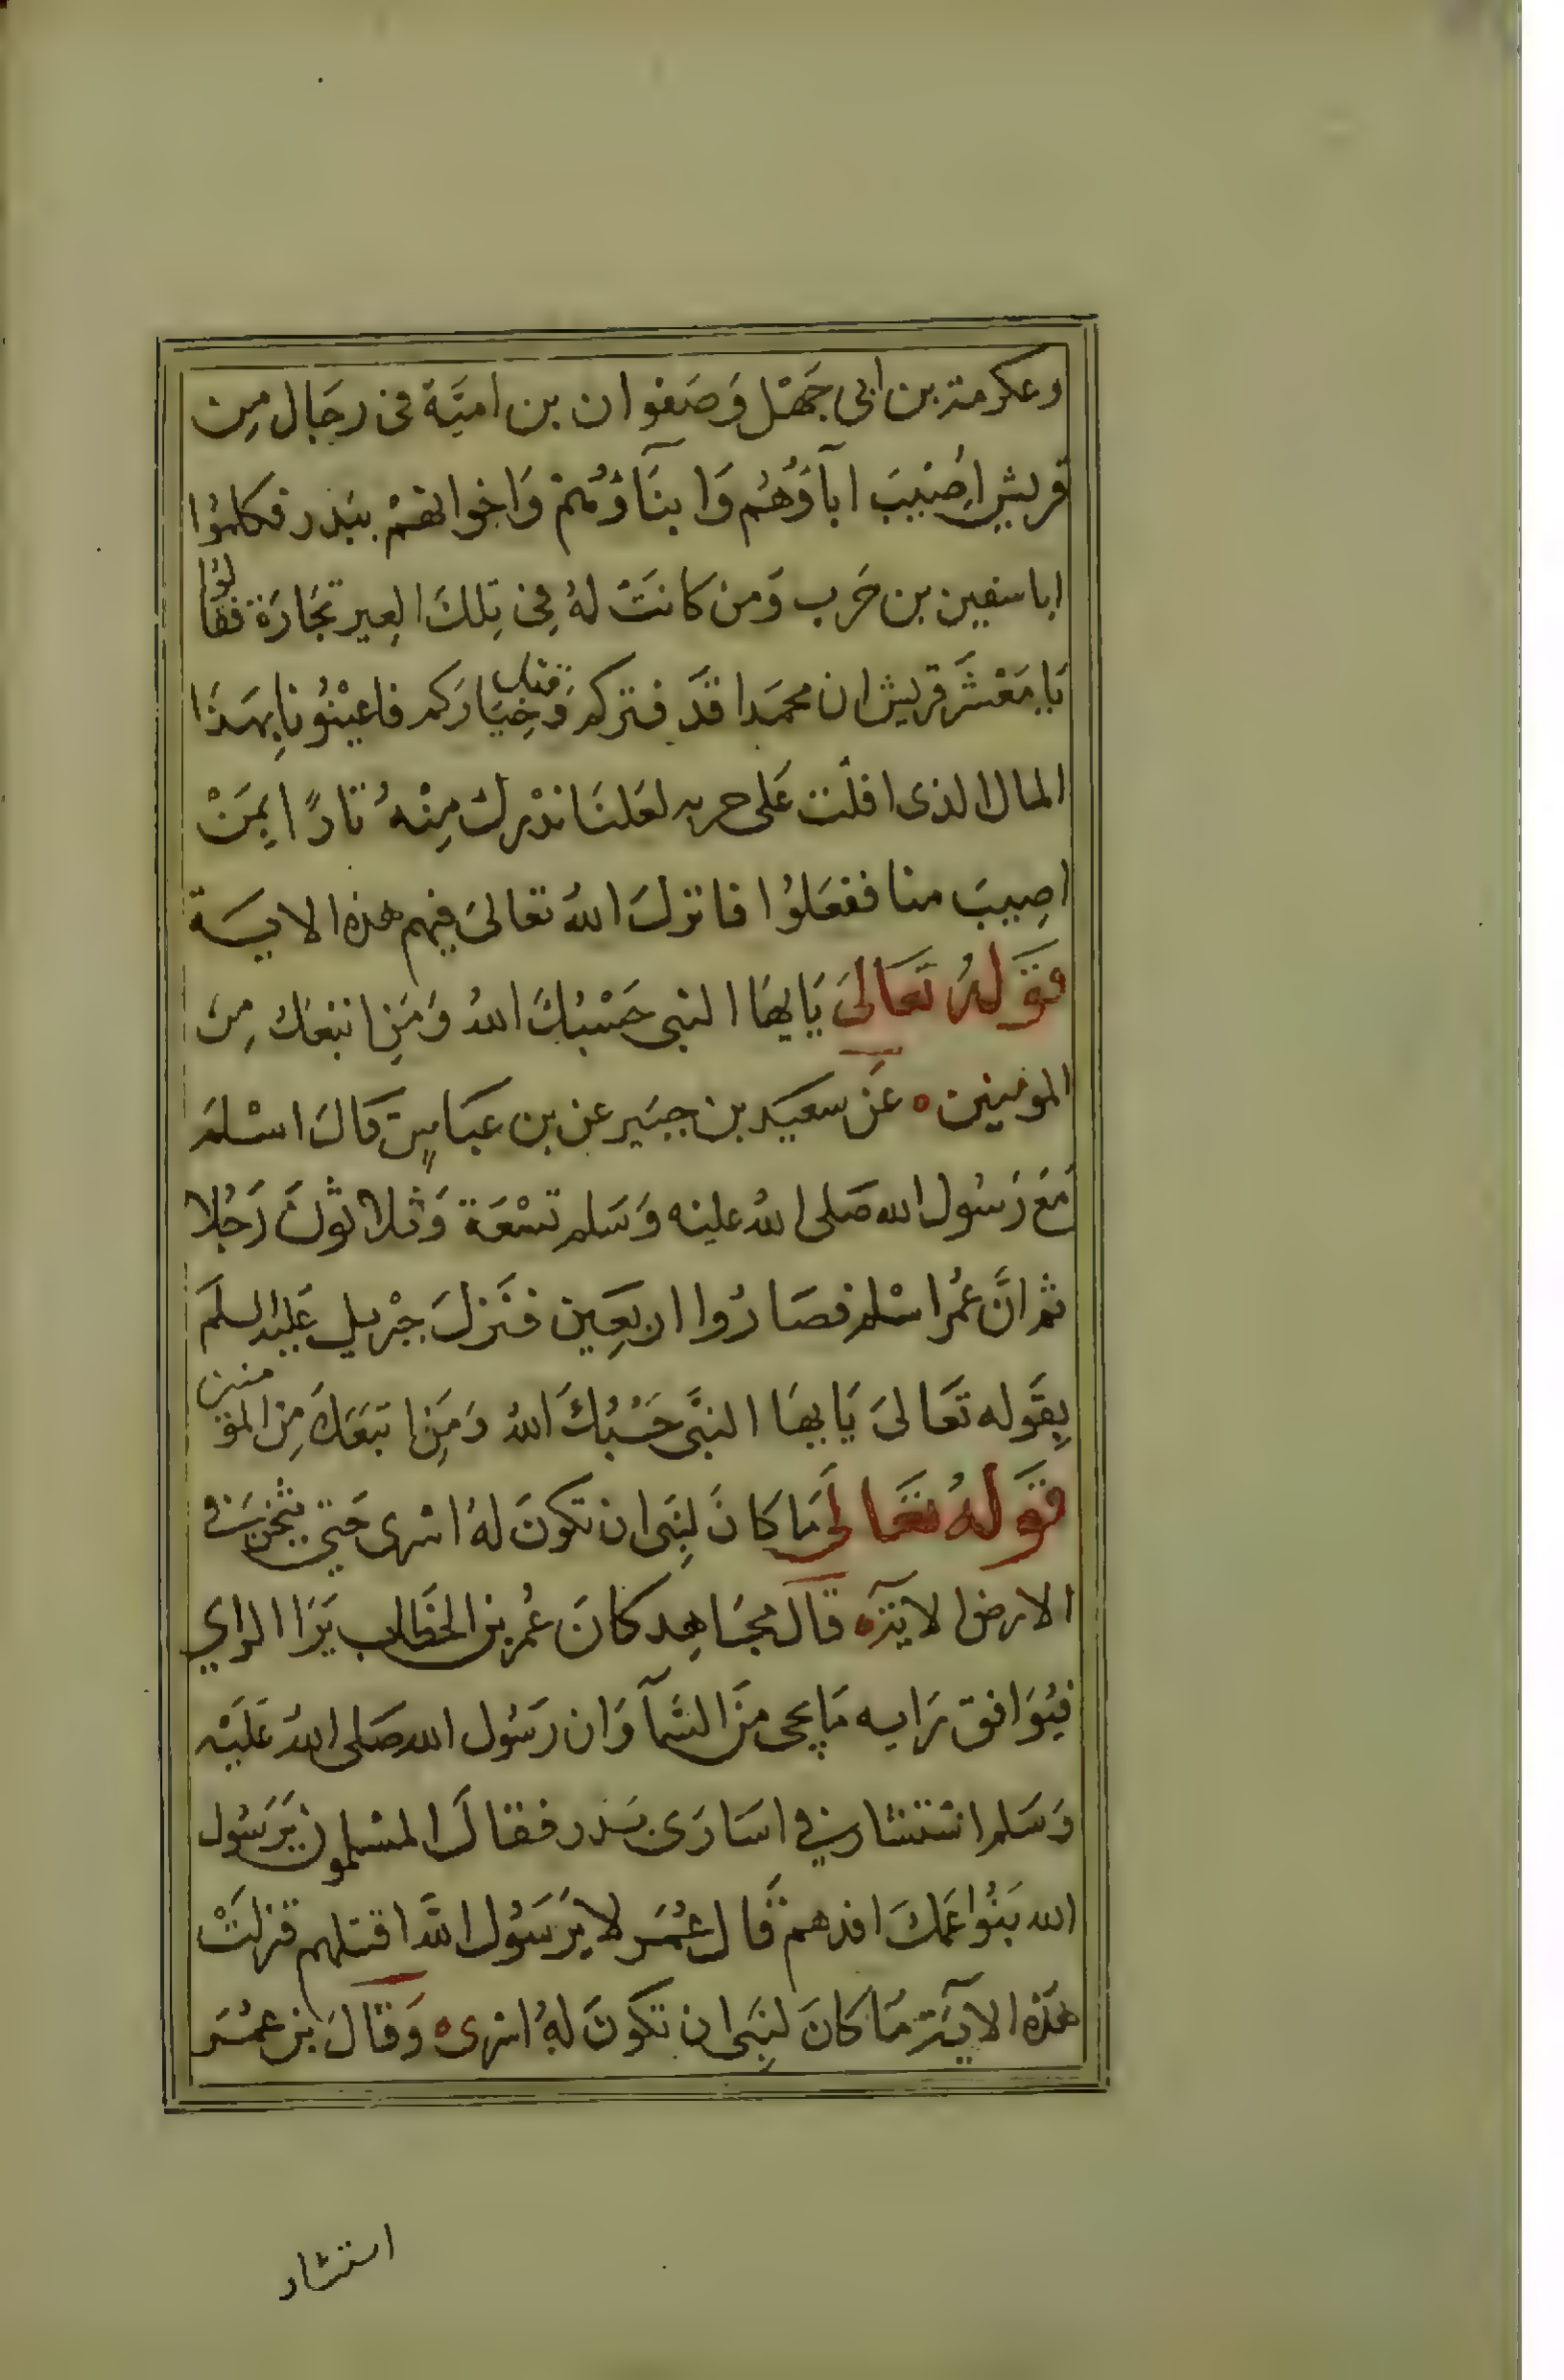 وعكرمة بن ابى جَهْل وَصَفوان بن اميَّة فى رجَال مِن
قريش اُصِيبَ اباَؤُهُم وَابنَآؤُهُمْ وَاخوانهُمْ ببَدر فكلمُوا
اباسفين بن حَرب وَمن كانَتْ لهُ فِى تِلكَ العِير تجَارَة فقالوُا
يَا مَعْشَر قريش ان محمَدا قدَ فتركم وَقتل خِيَاركم فاعينوُنا بِهَذا
المال الذى افلت عَلى حربه لعَلنَا ندْرك مِنْهُ ثارًا بِمَنْ
اصِيبَ منا ففعَلوُا فانزلَ اللهُ تعالىَ فِيهم هذه الايَة
قوَلهُ تعَالىَ يَايهَا النبى حَسْبُكَ اللهُ وَمَنِ اتبعَكَ مِنَ
المومنِين ه عَن سعيَد بن جبَير عن بن عبَاسٍ قالَ اسْلمَ
مَعَ رَسُول الله صَلى اللهُ علينه وَسَلم تسْعَة وَثلاثوُنَ رَجُلا
ثم انَّ عُمَر اسْلم فصَارُوا اربعِين فنَزلَ جبْريل عَليْه السلَم
بِقَوله تَعَالىَ يَايهَا النبَّى حَسْبُكَ اللهُ وَمَنِ اتبَعَكَ مِنَ المؤمنين
قوَلهُ تعَالىَ مَا كانَ لِنَبى ان تكونَ لهُ اسْرى حَتى يثخنَ فى
الارض الايَة ه قالَ مجَاهِد كانَ عُمر بن الخطاب يَرَا الراي
فيُوَافق رَايه مَا يجى منَ السَمآ وَان رَسُول الله صَلى اللهُ عَليْه
وَسَلم اسْتشار فى اسَارَى بَدر فقالَ المسْلمون يَرَسُول
الله بَنُوا عَمكَ افدهم قَال عُمَر لا يَرَسُول الله اقتلهم فنزلَتْ
هَذه الايَة مَا كانَ لنِبَى ان تكونَ لهُ اسْرى ه وَقالَ بن عمُرَ
استشار